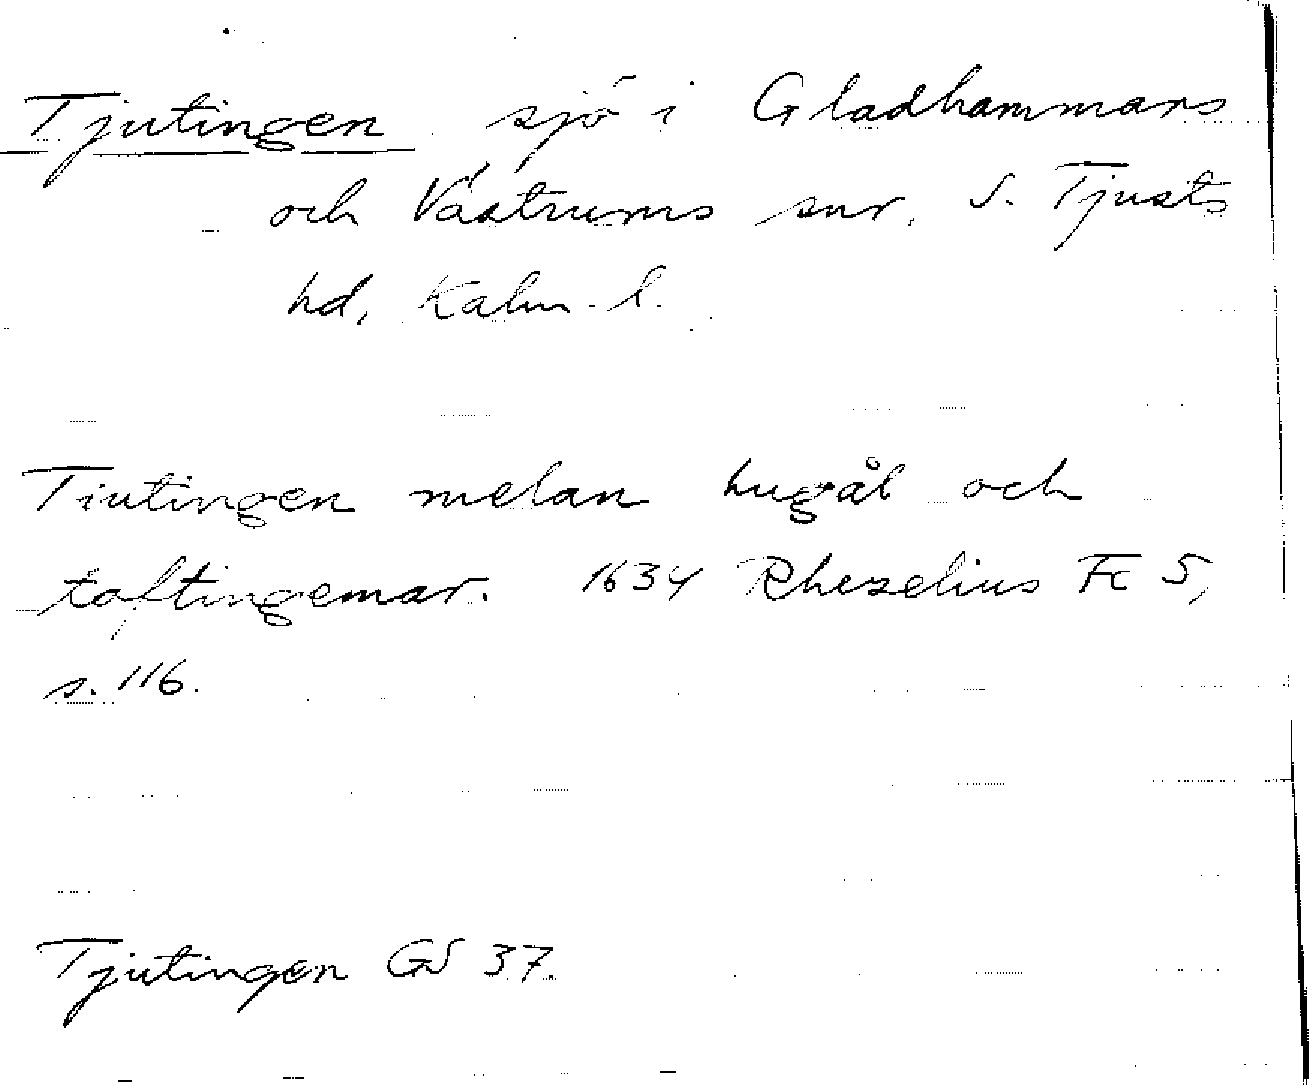 Tjutingen sjö i Gladhammars
och Västrums snr, S. Tjusts
hd, Kalm. l.
Tiutingen melan hugål och
toftingemar. 1634 Rhezelius Fc 5,
s. 116.
Tjutingen GS 37.